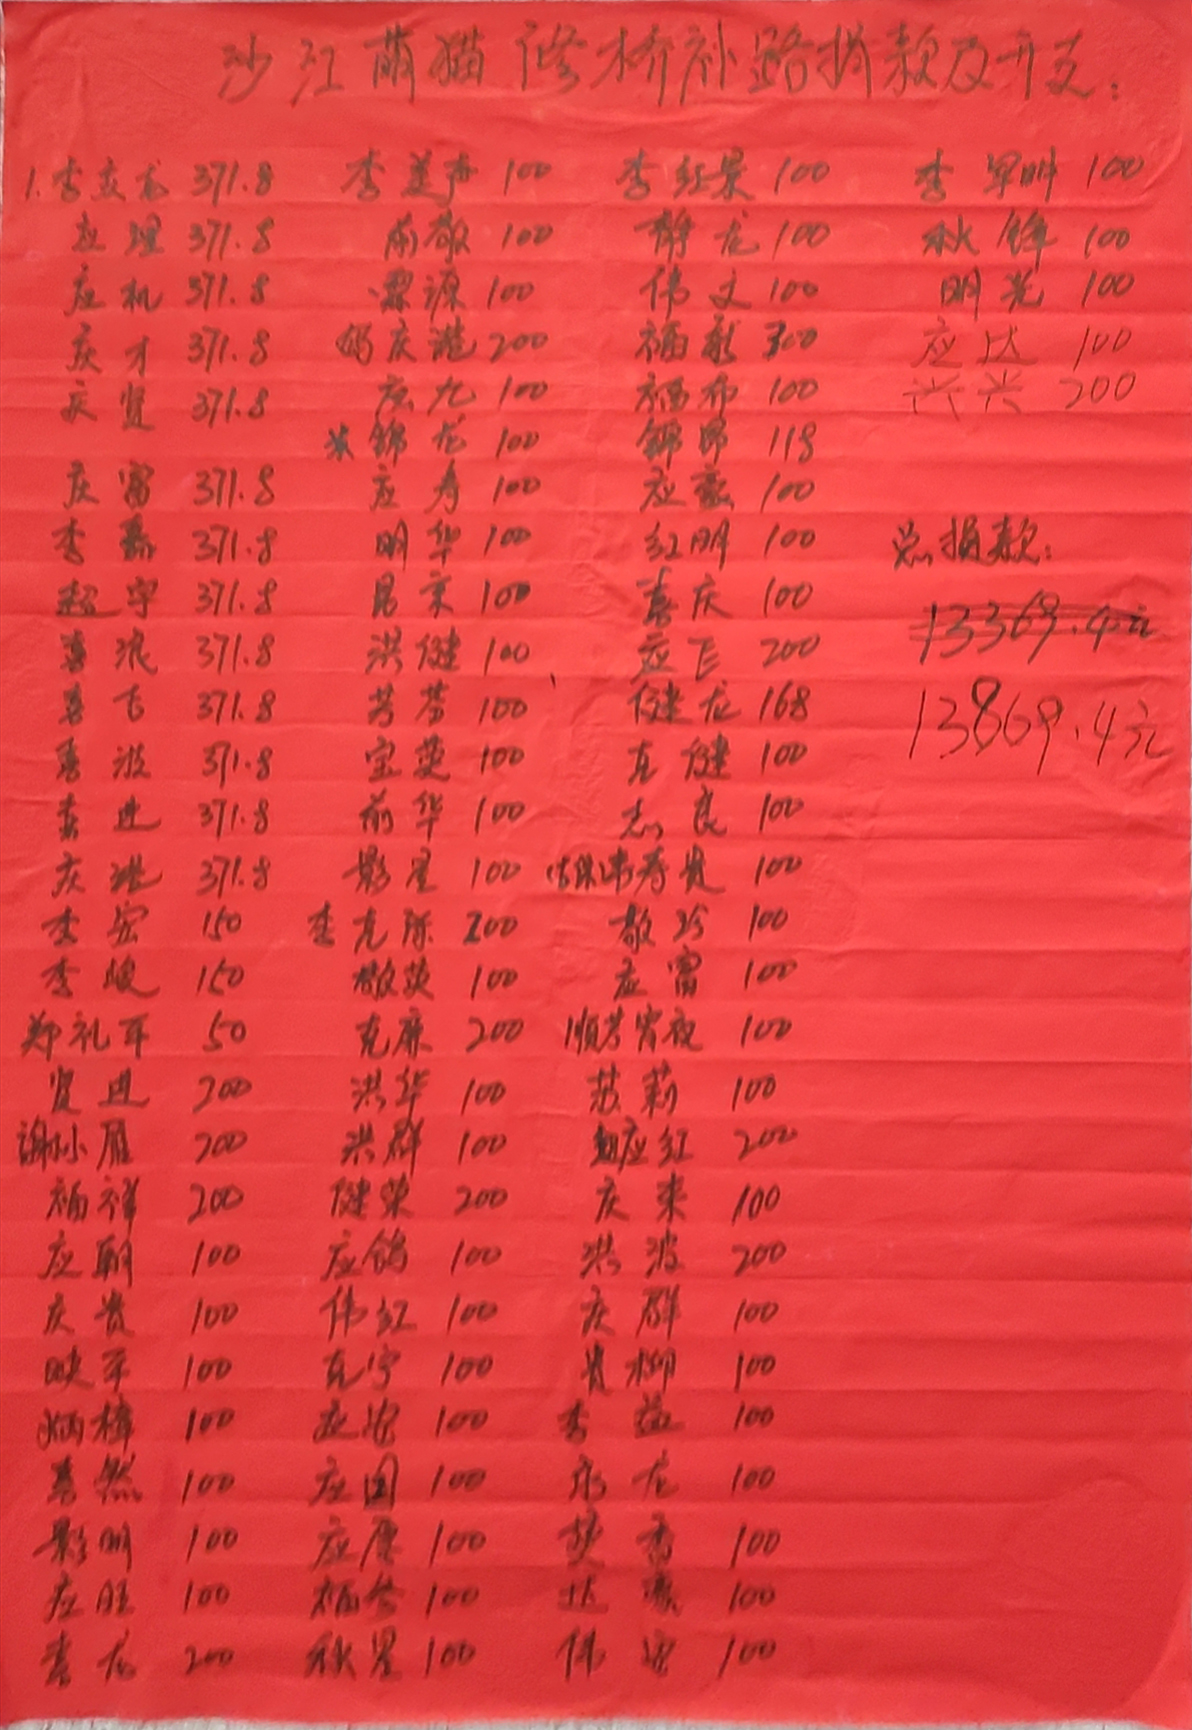 沙江萌猫修桥补路捐款及开支：
1.李友龙 371.8 李美声 100 李红景 100 李军明 100
应理 371.8 南敬 100 静龙 100 秋锋 100
应机 371.8 源 100 伟文 100 明光 100
庆才 371.8 庆港 200 福彩 300 应达 100
庆贤 371.8 应九 100 福布 100 兴兴 200
锦龙 100 锦昂 118
庆富 371.8 应寿 100 应豪 100
李磊 371.8 明华 100 红明 100 总捐款：
超宇 371.8 昌京 100 喜庆 100 13369.4元
喜浪 371.8 洪健 100 应飞 200
喜飞 371.8 芳芬 100 健龙 168 13869.4元
喜波 371.8 宝英 100 克健 100
喜进 371.8 前华 100 志良 100
庆洪 371.8 影星 100 寿贵 100
李宏 150 李克 200 敬珍 100
李峻 150 敬英 100 应富 100
郑礼军 50 克廉 200 顺芳宵夜 100
贤进 200 洪华 100 苏莉 100
谢小雁 200 洪群 100 应红 200
福祥 200 健荣 200 庆来 100
应朝 100 应鸽 100 洪波 200
庆贵 100 伟红 100 庆群 100
映军 100 克宁 100 贵柳 100
炳樟 100 应宏 100 李益 100
喜然 100 应国 100 永龙 100
影明 100 应屋 100 樊香 100
应旺 100 福冬 100 达豪 100
喜龙 200 秋星 100 伟安 100